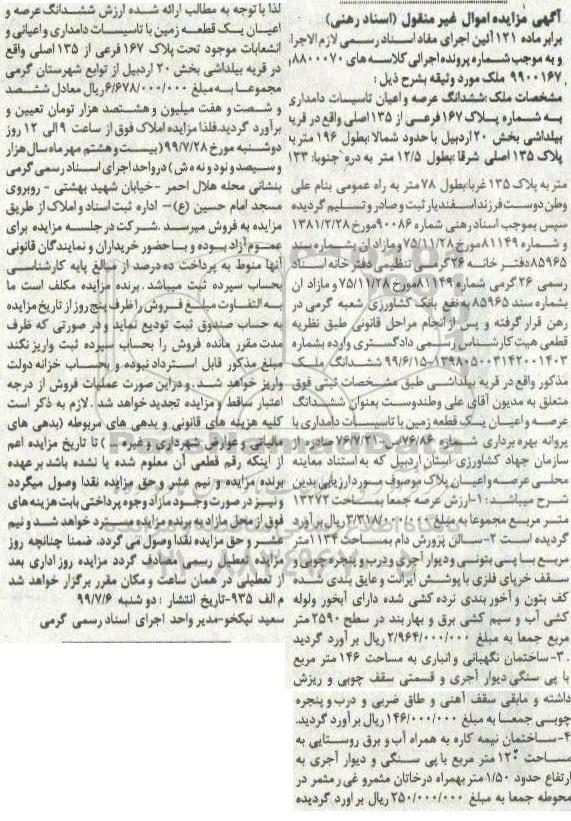 آگهی مزایده اموال غیر منقول (اسناد رهنی)
برابر ماده ۱۲۱ آئین اجرای مفاد اسناد رسمی لازم الاجرا
و به موجب شماره پرونده اجرائی کلاسه های ۸۸۰۰۰۷۰و
۹۹۰۰۱۶۷ ملک مورد وثیقه بشرح ذیل :
مشخصات ملک:ششدانگ عرصه و اعیان تاسیسات دامداری
به شماره پلاک ۱۶۷ فرعی از ۱۳۵ اصلی واقع در قریه
بیلداشی بخش ۲۰ اردبیل با حدود شمالا:بطول ۱۹۶ متر به
پلاک ۱۳۵ اصلی شرقا:بطول ۱۲/۵ متر به دره جنوبا: ۱۳۳
متر به پلاک ۱۳۵ غربا:بطول ۷۸ متر به راه عمومی بنام علی
وطن دوست فرزند اسفندیار ثبت و صادر و تسلیم گردیده
سپس بموجب اسناد رهنی شماره ۹۰۰۸۶مورخ ۱۳۸۱/۲/۲۸
و شماره ۸۱۱۴۹مورخ ۷۵/۱۱/۲۸ و مازاد ان بشماره سند
۸۵۹۶۵دفتر خانه ۲۶گرمی تنظیمی دفتر خانه اسناد
رسمی ۲۶ گرمی شماره ۸۱۱۴۹مورخ ۷۵/۱۱/۲۸ و مازاد ان
بشماره سند ۸۵۹۶۵ به نفع بانک کشاورزی شعبه گرمی در
رهن قرار گرفته و پس از انجام مراحل قانونی طبق نظریه
قطعی هیت کارشناس رسمی دادگستری وارده بشماره
۱۳۹۸۰۵۰۰۳۱۴۲۰۰۱۴۰۳-۹۹/۶/۱۵ ششدانگ ملک
مذکور واقع در قریه بیلداشی طبق مشخصات ثبتی فوق
متعلق به مدیون آقای علی وطندوست بعنوان ششدانگ
عرصه و اعیان یک قطعه زمین با تاسیسات دامداری با
پروانه بهره برداری شماره ۷۶/۸۶/س-۷۶/۷/۲۱ صادره از
سازمان جهاد کشاورزی استان اردبیل که به استناد معاینه
محلی عرصه و اعیان پلاک موصوف مورد ارزیابی بدین
شرح میباشد: ۱-ارزش عرصه جمعا بمساحت ۱۳۲۷۲
متر مربع مجموعا به مبلغ ۳/۳۱۸/۰۰۰/۰۰۰ریال بر آورد
گردیده است ۲-سالن پرورش دام بمساحت ۱۱۳۴متر
مربع با پی بتونی و دیوار آجری و درب و پنجره چوبی و
سقف خرپای فلزی با پوشش ایرانت و عایق بندی شده
کف بتون و آخور بندی نرده کشی شده دارای آبخور ولوله
کشی آب و سیم کشی برق و بهار بند در سطح ۲۵۹۰ متر
مربع جمعا به مبلغ ۲/۹۶۴/۰۰۰/۰۰۰ ریال بر آورد گردید
۳-ساختمان نگهبانی و انباری به مساحت ۱۴۶ متر مربع
با پی سنگی دیوار آجری و قسمتی سقف چوبی و ریزش
داشته و مابقی سقف آهنی و طاق ضربی و درب و پنجره
چوبی جمعا به مبلغ ۱۴۶/۰۰۰/۰۰۰ ریال بر آورد گردید.
۴-ساختمان نیمه کاره به همراه آب و برق روستایی به
مساحت ۱۲۰ متر مربع با پی سنگی و دیوار آجری به
ارتفاع حدود ۱/۵۰ متر بهمراه درختان مثمر و غیر مثمر در
محوطه جمعا به مبلغ ۲۵۰/۰۰۰/۰۰۰ ریال بر اورد گردیده
لذا با توجه به مطالب ارائه شده ارزش ششدانگ عرصه و
اعیان یک قطعه زمین با تاسیسات دامداری و اعیانی و
انشعابات موجود تحت پلاک ۱۶۷ فرعی از ۱۳۵ اصلی واقع
در قریه بیلداشی بخش ۲۰ اردبیل از توابع شهرستان گرمی
مجموعا به مبلغ ۶/۶۷۸/۰۰۰/۰۰۰ریال معادل ششصد
و شصت و هفت میلیون و هشتصد هزار تومان تعیین و
برآورد گردید.فلذا مزایده املاک فوق از ساعت ۹الی ۱۲ روز
دوشنبه مورخ ۹۹/۷/۲۸(بیست و هشتم مهر ماه سال هزار
و سیصد و نود و نه ه ش) در واحد اجرای اسناد رسمی گرمی
بنشانی محله هلال احمر -خیابان شهید بهشتی - روبروی
مسجد امام حسین (ع)- اداره ثبت اسناد و املاک از طریق
مزایده به فروش میرسد .شرکت در جلسه مزایده برای
عموم آزاد بوده و با حضور خریداران و نمایندگان قانونی
آنها منوط به پرداخت ده درصد از مبالغ پایه کارشناسی
بحساب سپرده ثبت میباشد .برنده مزایده مکلف است ما
به التفاوت مبلغ فروش را ظرف پنج روز از تاریخ مزایده
به حساب صندوق ثبت تودیع نماید و در صورتی که ظرف
مدت مقرر مانده فروش را بحساب سپرده ثبت واریز نکند
مبلغ مذکور قابل استرداد نبوده و بحساب خزانه دولت
واریز خواهد شد .و دراین صورت عملیات فروش از درجه
اعتبار ساقط و مزایده تجدید خواهد شد .لازم به ذکر است
کلیه هزینه های قانونی و بدهی های مربوطه (بدهی های
مالیاتی و عوارض شهرداری و غیره...) تا تاریخ مزایده اعم
از اینکه رقم قطعی آن معلوم شده یا نشده باشد بر عهده
برنده مزایده و نیم عشر و حق مزایده نقدا وصول میگردد
و نیز در صورت وجود مازاد وجوه پرداختی بابت هزینه های
فوق از محل مازاد به برنده مزایده مسترد خواهد شد و نیم
عشر و حق مزایده نقدا وصول می گردد. ضمنا چنانچه روز
مزایده تعطیل رسمی مصادف گردد مزایده روز اداری بعد
از تعطیلی در همان ساعت و مکان مقرر برگزار خواهد شد
م الف ۹۳۵-تاریخ انتشار : دو شنبه ۹۹/۷/۶
سعید نیکخو-مدیر واحد اجرای اسناد رسمی گرمی